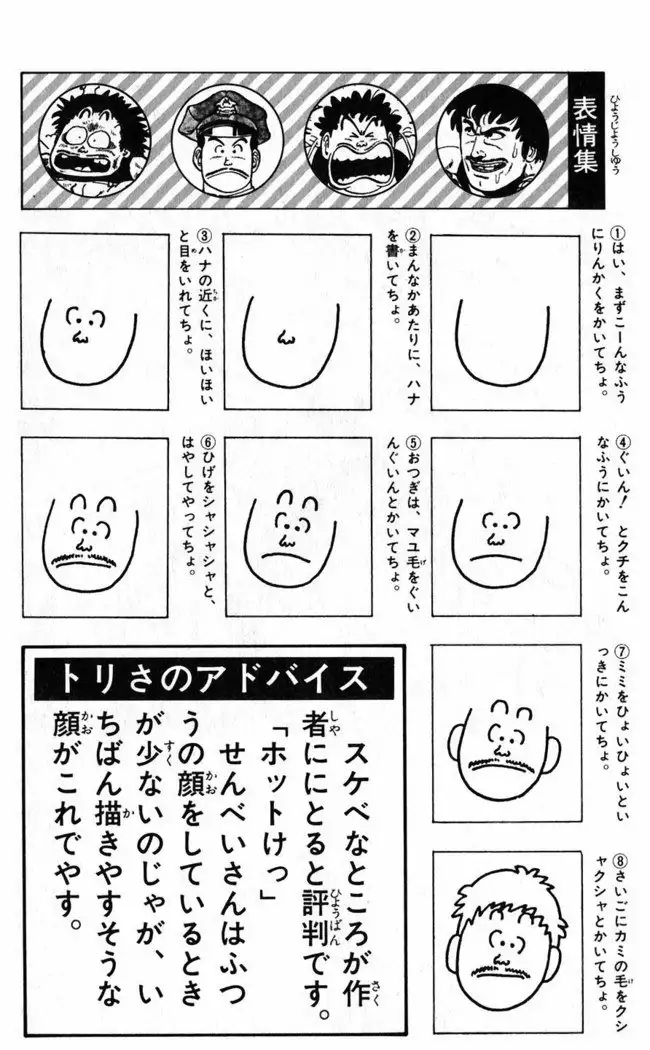 表情集
①はい、まずこーんなふう
にりんかくをかいてちょ。
②まんなかあたりに、ハナ
を書いてちょ。
③ハナの近くに、ほいほい
と目をいれてちょ。
④ぐいん! とクチをこん
なふうにかいてちょ。
⑤おつぎは、マユ毛をぐい
んぐいんとかいてちょ。
⑥ひげをシャシャシャと、
はやしてやってちょ。
⑦ミミをひょいひょいとい
っきにかいてちょ。
⑧さいごにカミの毛をクシ
ャクシャとかいてちょ。
トリさのアドバイス
スケベなところが作
者ににとると評判です。
「ホットけっ」
せんべいさんはふつ
うの顔をしているとき
が少ないのじゃが、い
ちばん描きやすそうな
顔がこれでやす。